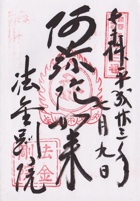 奉拝 平成廿三年
七月九日
阿弥陀如来
法金剛院
法金